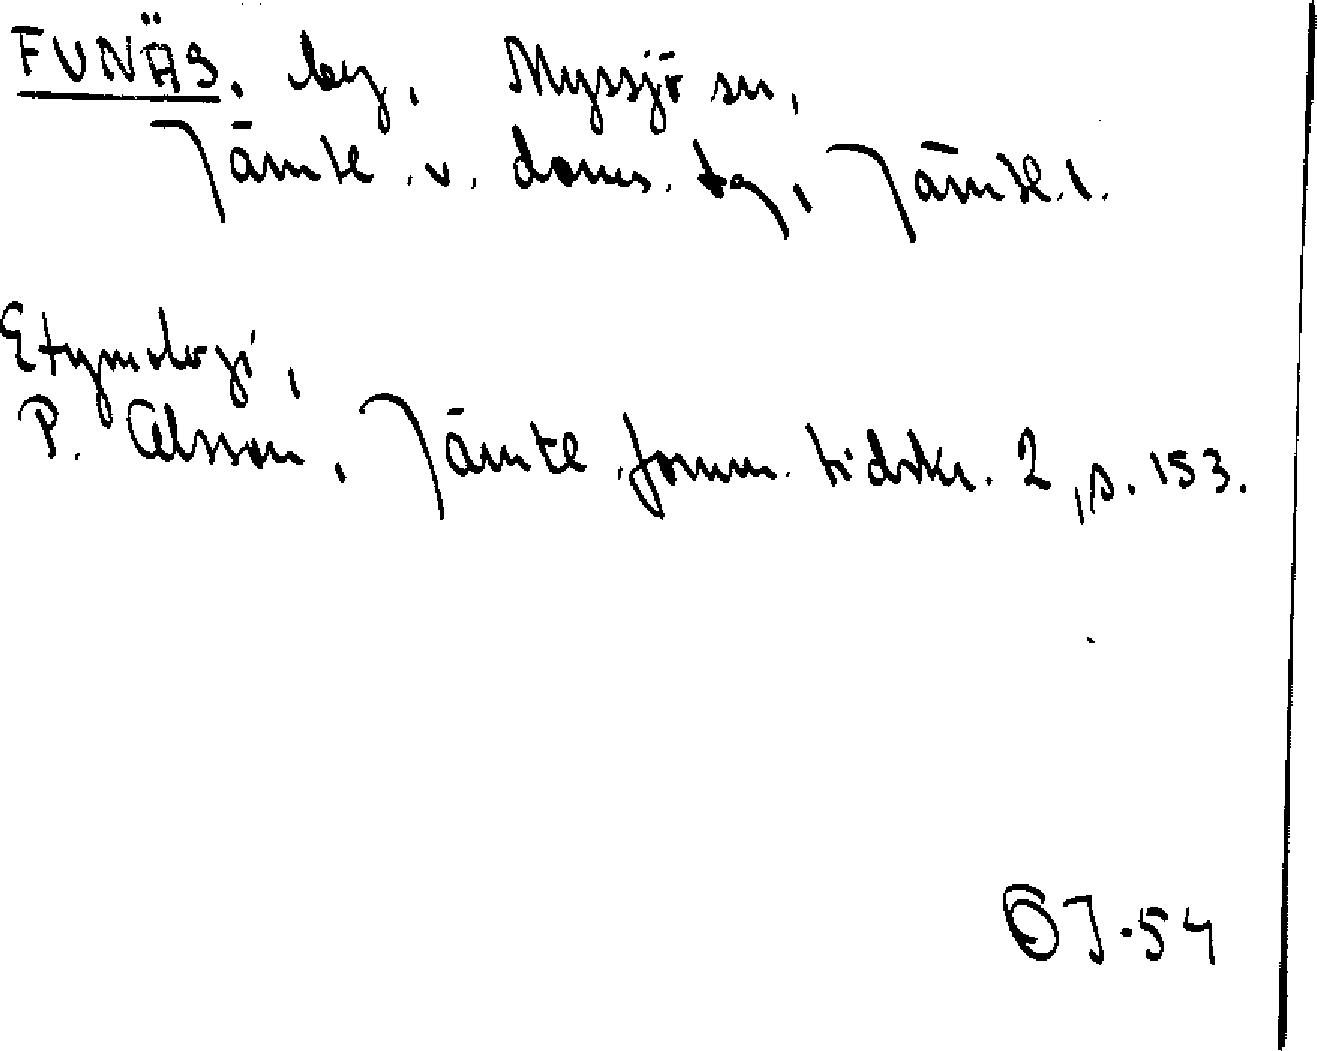 FUNÄS, by, Myssjö sn,
Jämtl. v. doms. tg, Jämtl. l.
Etymologi,
P. Olsson, Jämtl. fornm. tidskr. 2, s. 153.
ÖJ-54